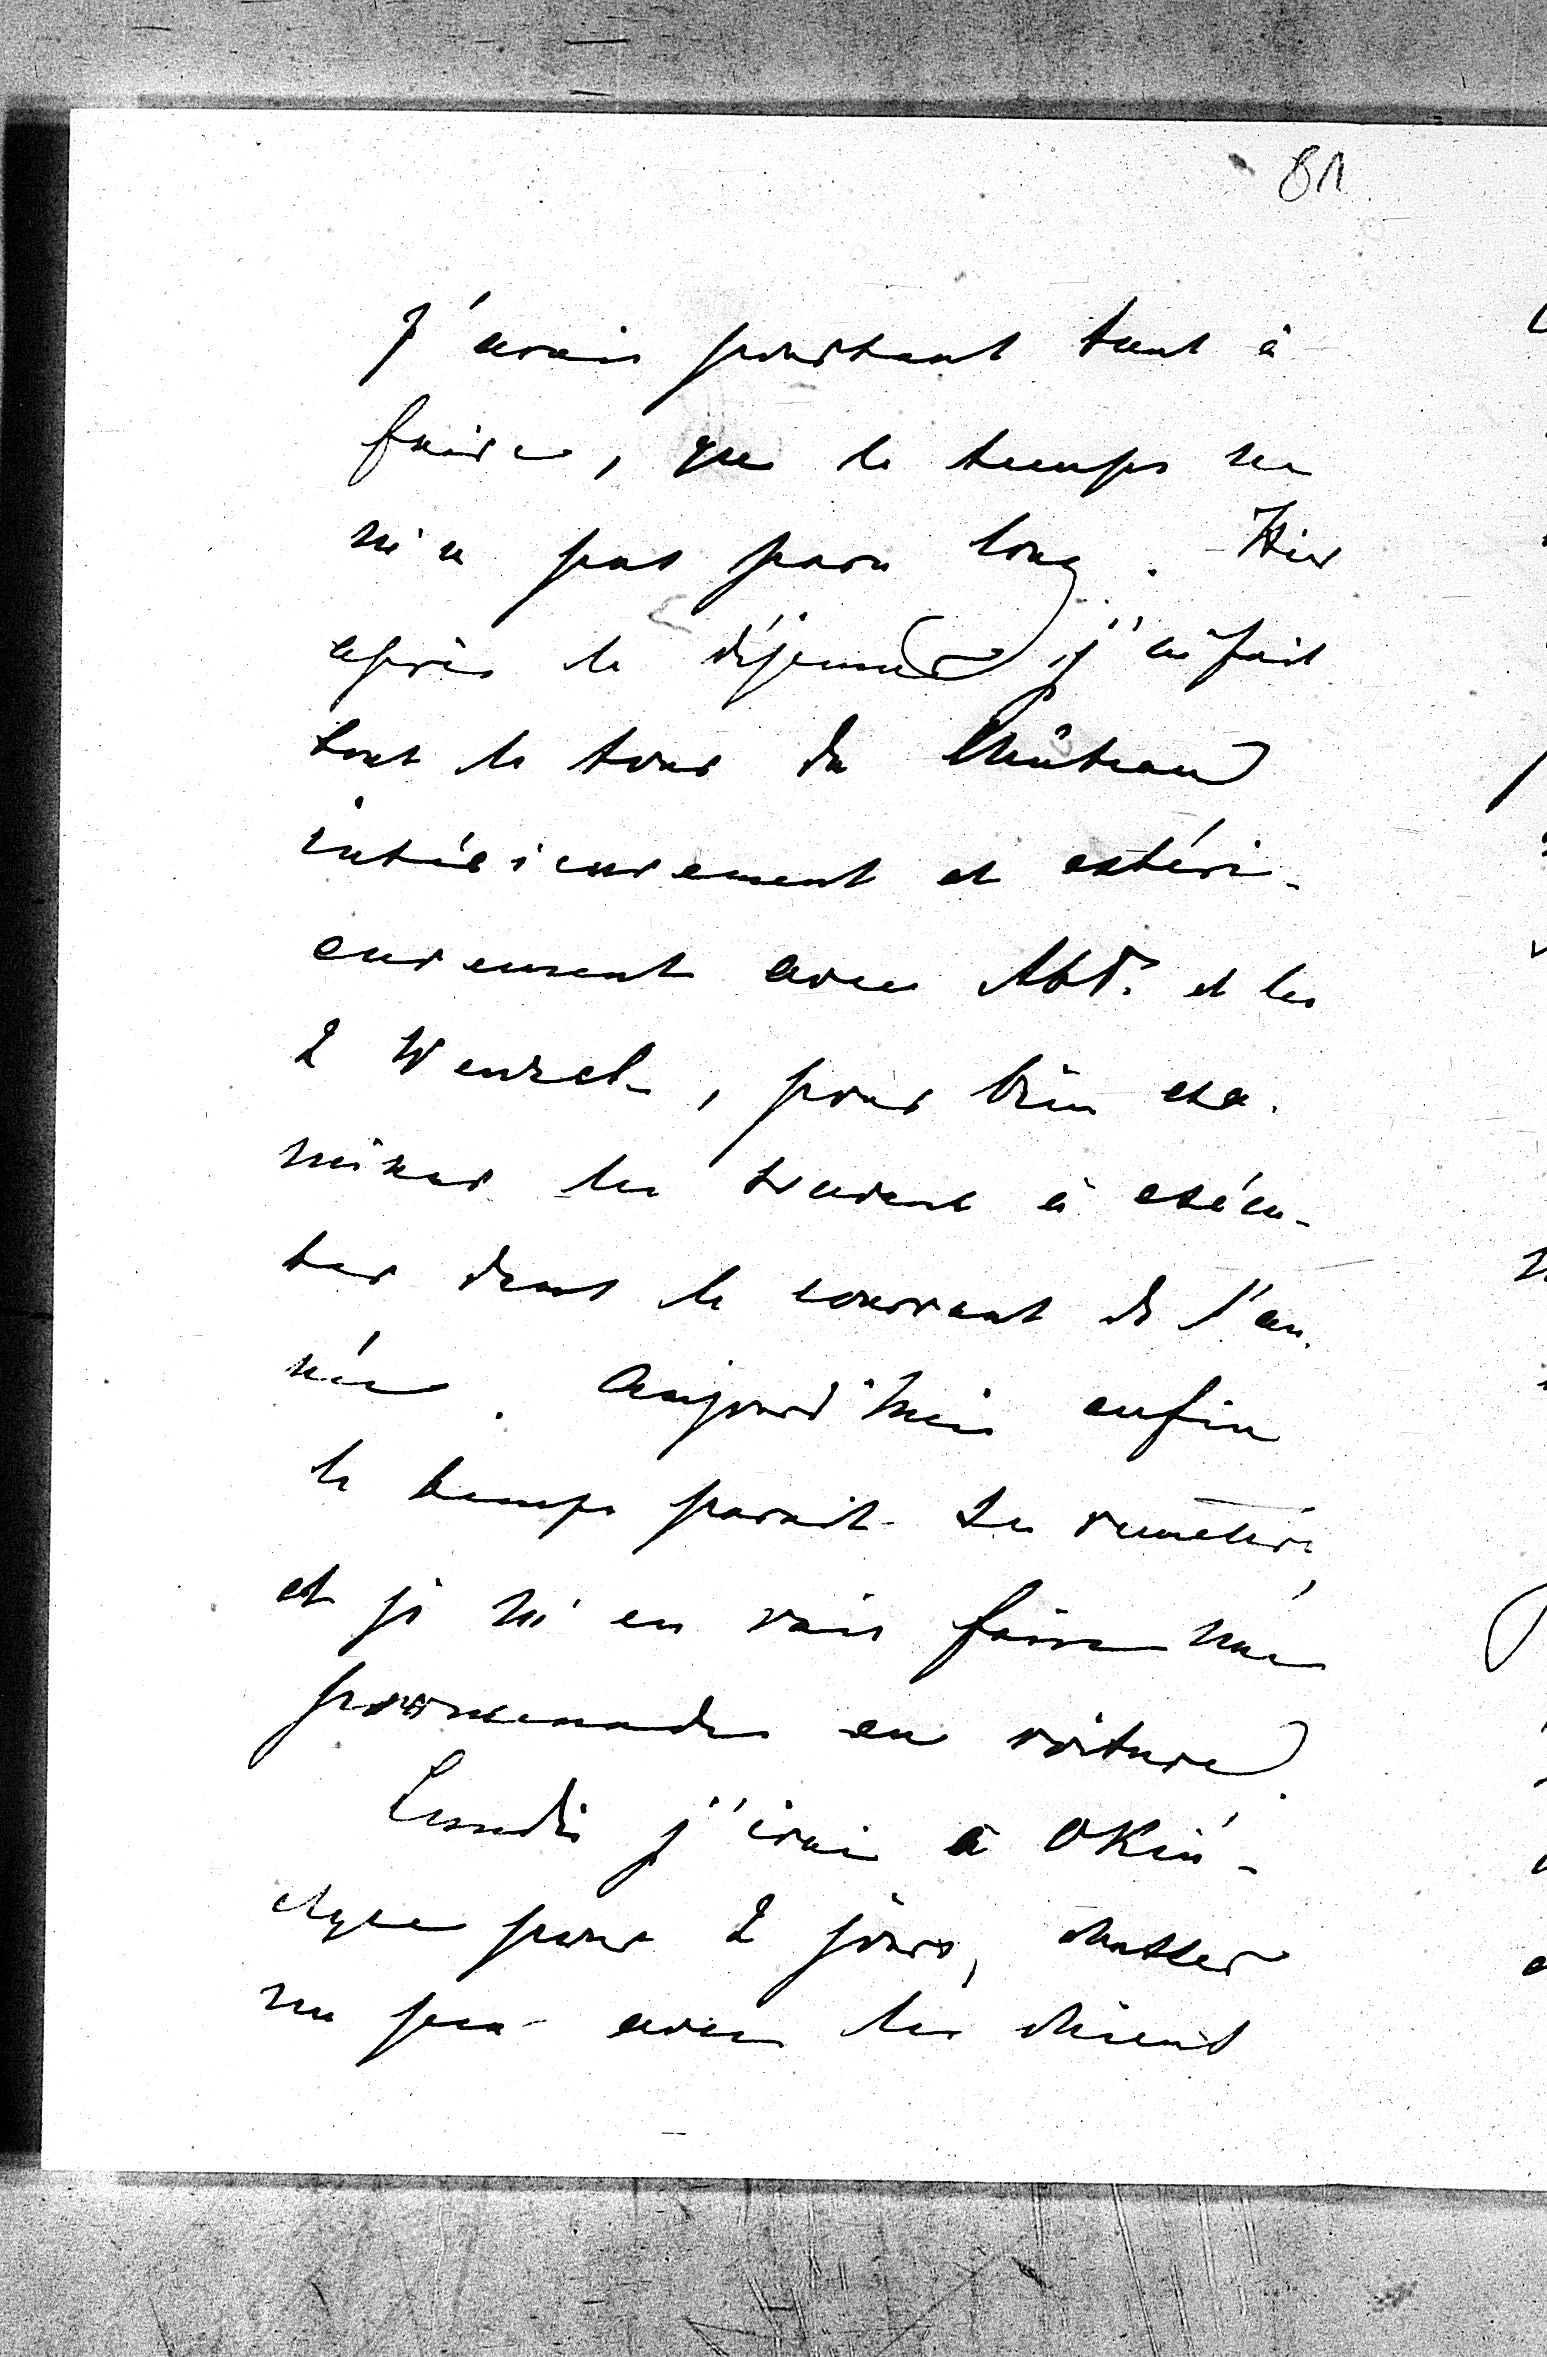 81
J'avais pourtant tant à
faire, que le temps ne
m'a pas paru long. Hier
après le déjeuner j'ai fait
tout le tour du Château
intérieurement et extéri-
eurement avec Abt. et les
2 Wenzel, pour bien exa-
miner les travaux à exécu-
ter dans le courant de l'an-
née. Aujourd'hui enfin
le temps parait se remettre,
et je m'en vais faire une
promenade en voiture.
Lundi j'irai à
pour 2 jours, chasser
un peu avec les chiens